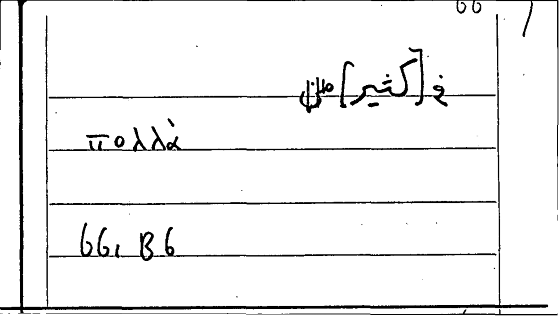 في [كثير] من
πολλὰ
66, B6